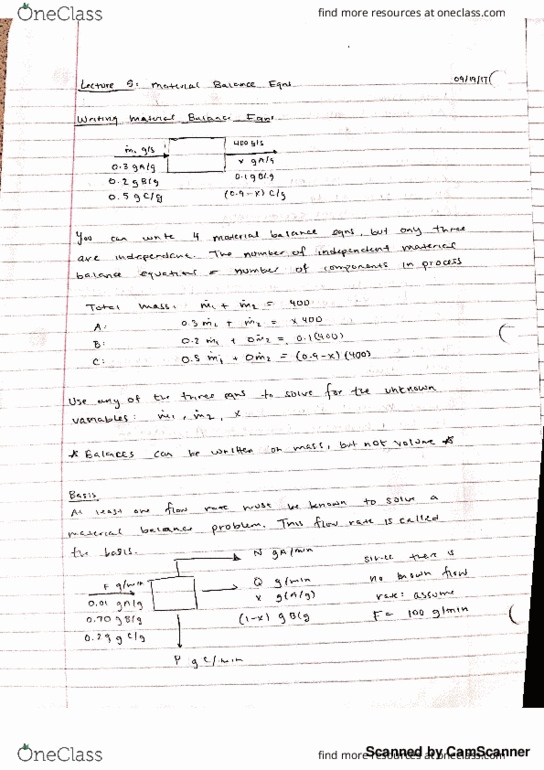 OneClass
find more resources at oneclass.com
Lecture 5: Material Balance Eqns
09/19/17
Writing Material Balance Eqns
ṁ₁ g/s
400 g/s
0.3 gA/g
x gA/g
0.2 gB/g
0.1 gB/g
0.5 gC/g
(0.9-x) C/g
You can write 4 material balance eqns, but only three
are independent. The number of independent material
balance equations = number of components in process
Total mass: ṁ₁ + ṁ₂ = 400
A: 0.3ṁ₁ + ṁ₂ = x400
B: 0.2ṁ₁ + 0ṁ₂ = 0.1(400)
C: 0.5ṁ₁ + 0ṁ₂ = (0.9-x)(400)
Use any of the three eqns to solve for the unknown
variables: ṁ₁, ṁ₂, x
* Balances can be written on mass, but not volume *
Basis
At least one flow rate must be known to solve a
material balance problem. This flow rate is called
the basis.
N gA/min
F g/min
0.01 gA/g
0.70 gB/g
0.29 gC/g
Q g/min
x g(A/g)
(1-x) gB/g
P gC/min
since there is
no known flow
rate: assume
F = 100 g/min
OneClass
find more resources at oneclass.com
Scanned by CamScanner